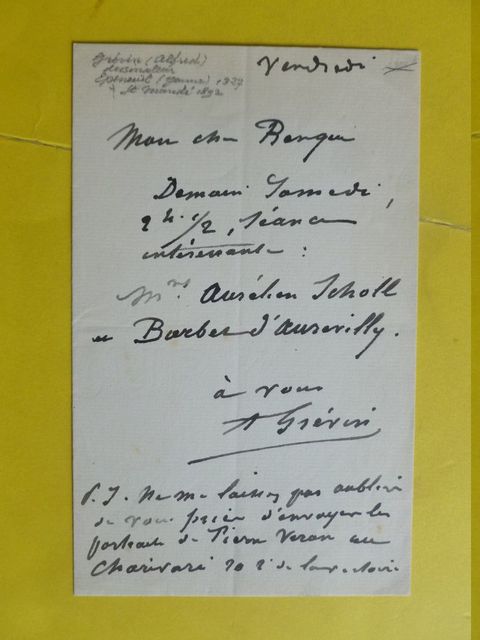 Grévin (Alfred)
dessinateur
Epineuil (Yonne) 1827
+ St Mandé 1892
Vendredi
Mon cher
Demain Samedi,
2h. 1/2, séance
intéressante :
Mrs. Aurélien Scholl
et Barbey d'Aurevilly.
à vous
A Grévin
P. S. Ne me laissez pas oublier
de vous prier d'envoyer les
portraits de Pierre Veron au
Charivari 20 r de la victoire